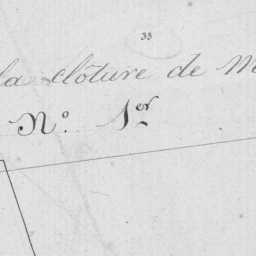 33
la clôture de
N.º 1.er